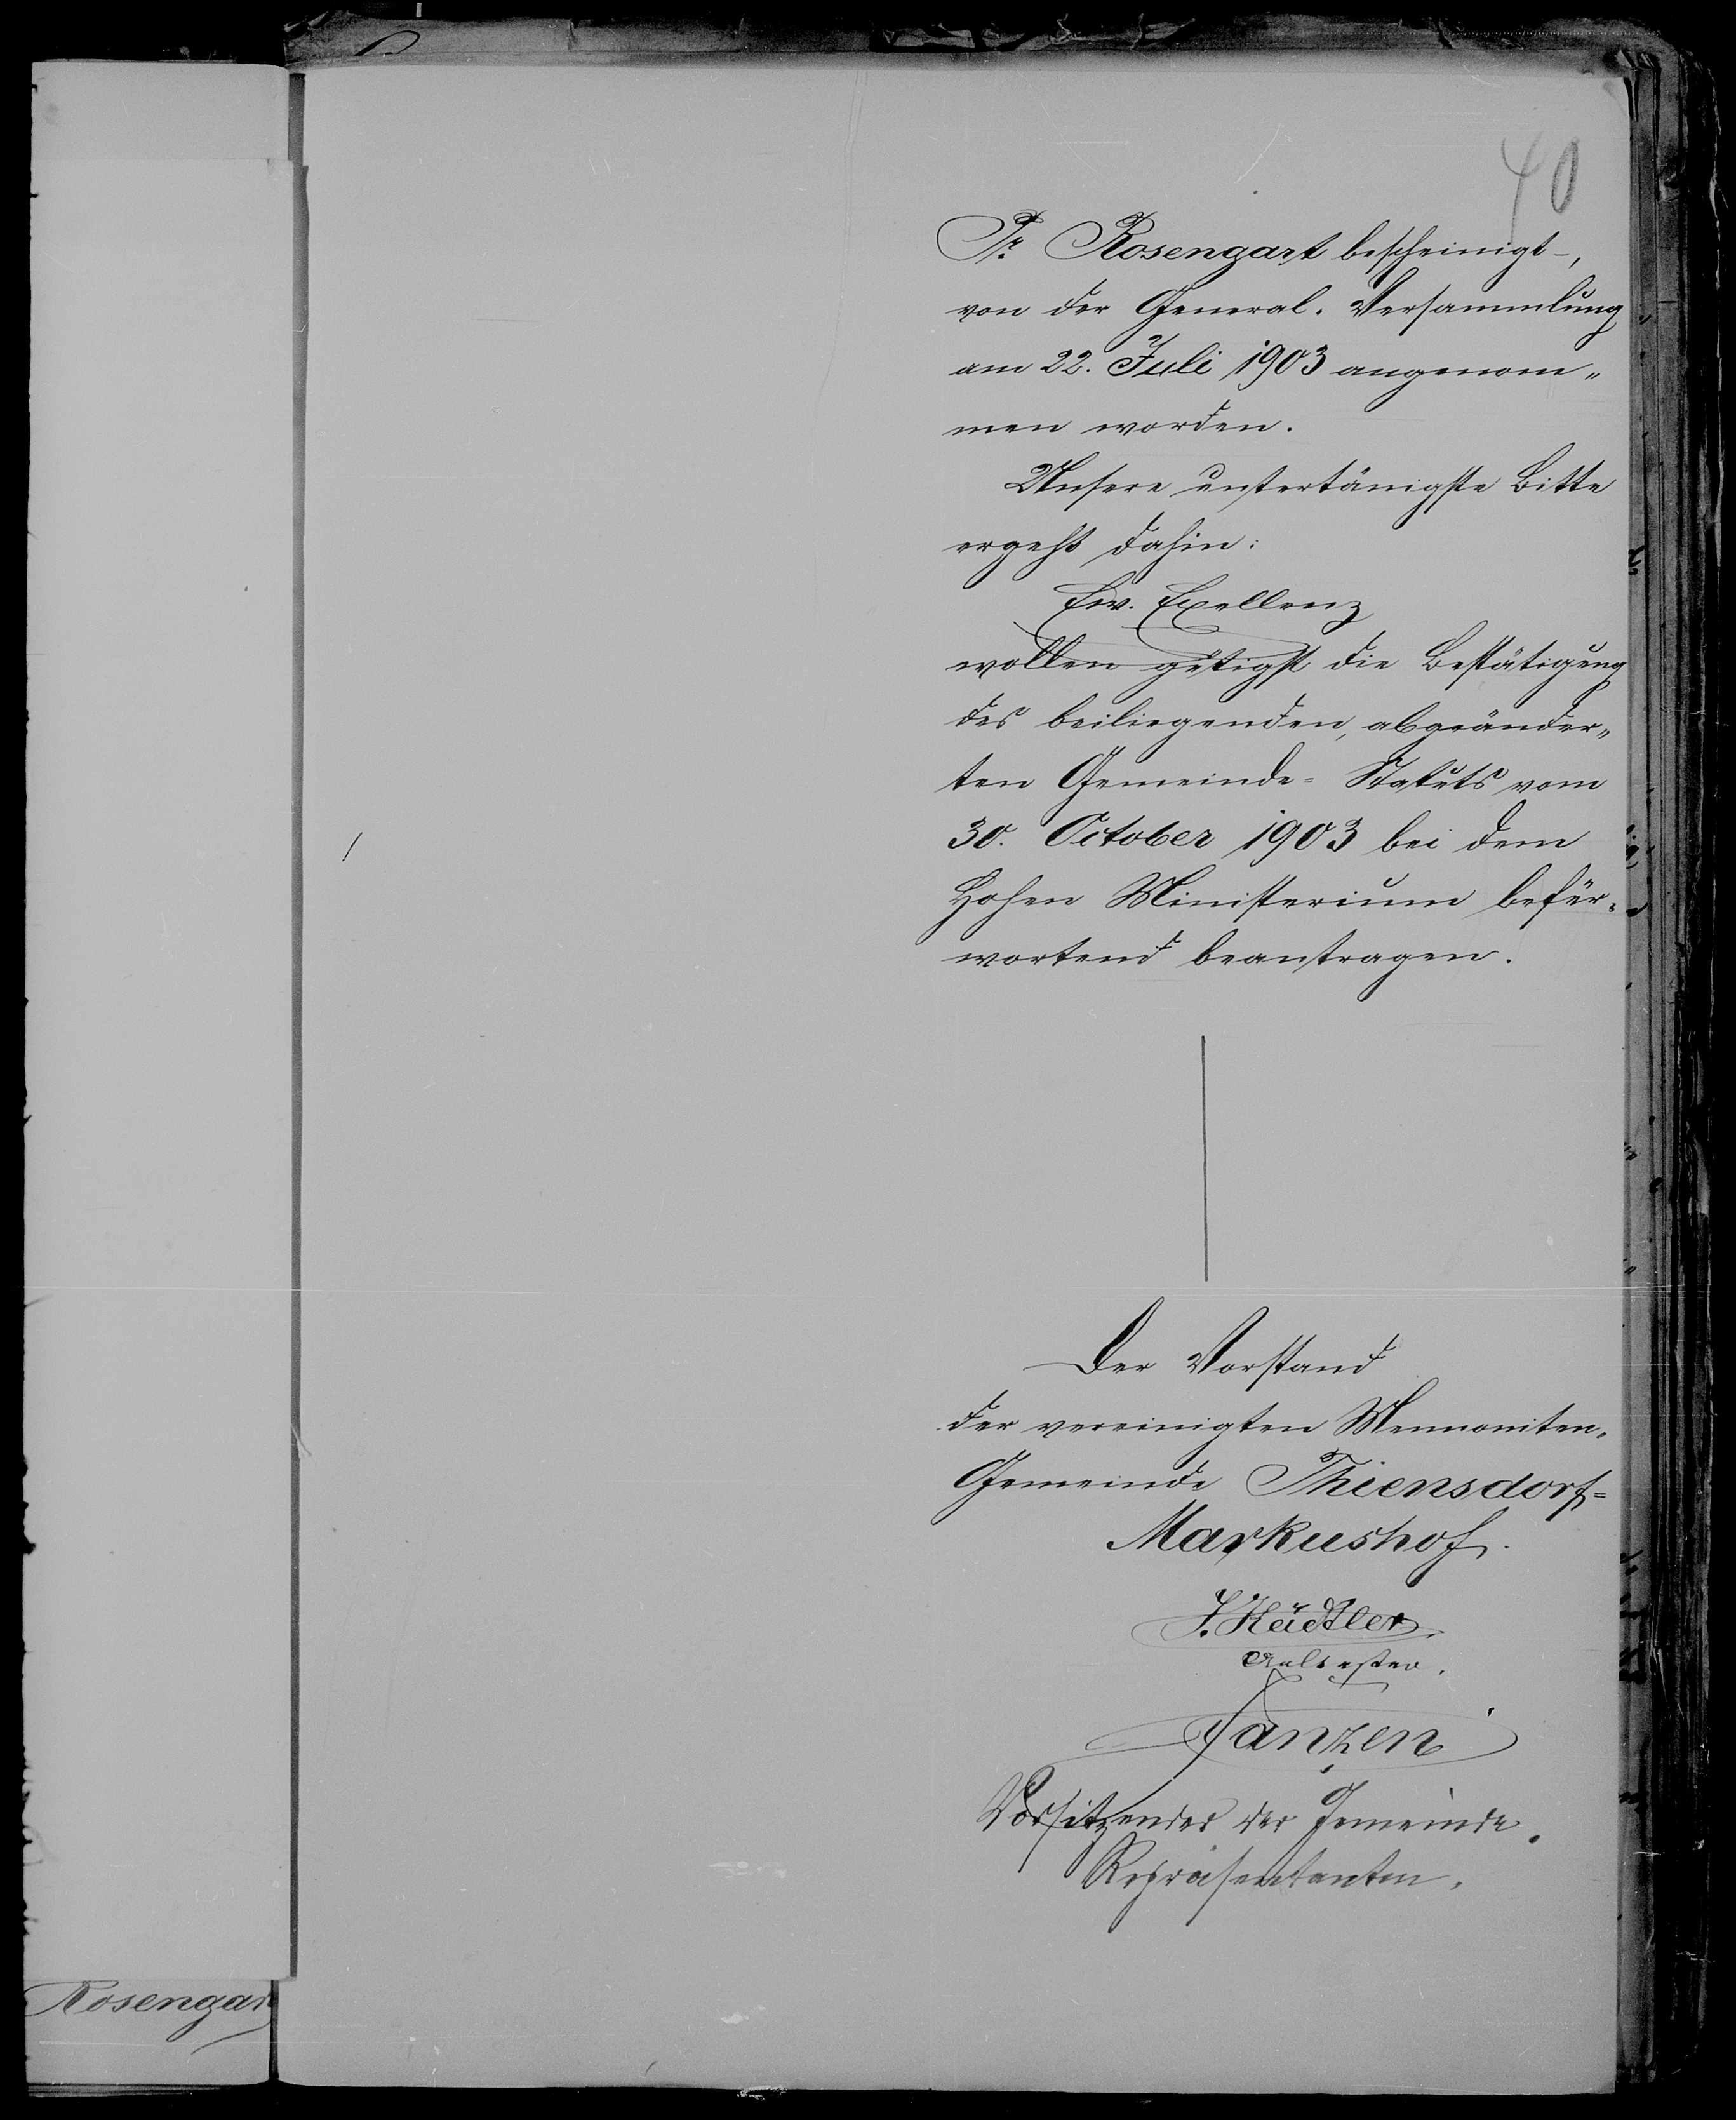 40
Pr. Rosengart bescheinigt -,
von der General-Versammlung
am 22. Juli 1903 angenom-
men worden.
Unsere untertänigste Bitte
ergeht dahin:
Ew. Exellenz
wollen gütigst die Bestätigung
des beiliegenden, abgeänder-
ten Gemeinde-Statuts vom
30. October 1903 bei dem
Hohen Ministerium befür-
wortend beantragen.
Der Vorstand
der vereinigten Mennoniten-
Gemeinde Thiensdorf-
Markushof.
Aeltester.
Janzen
Vorsitzender der Gemeinde-
Repräsentanten.
Rosengar